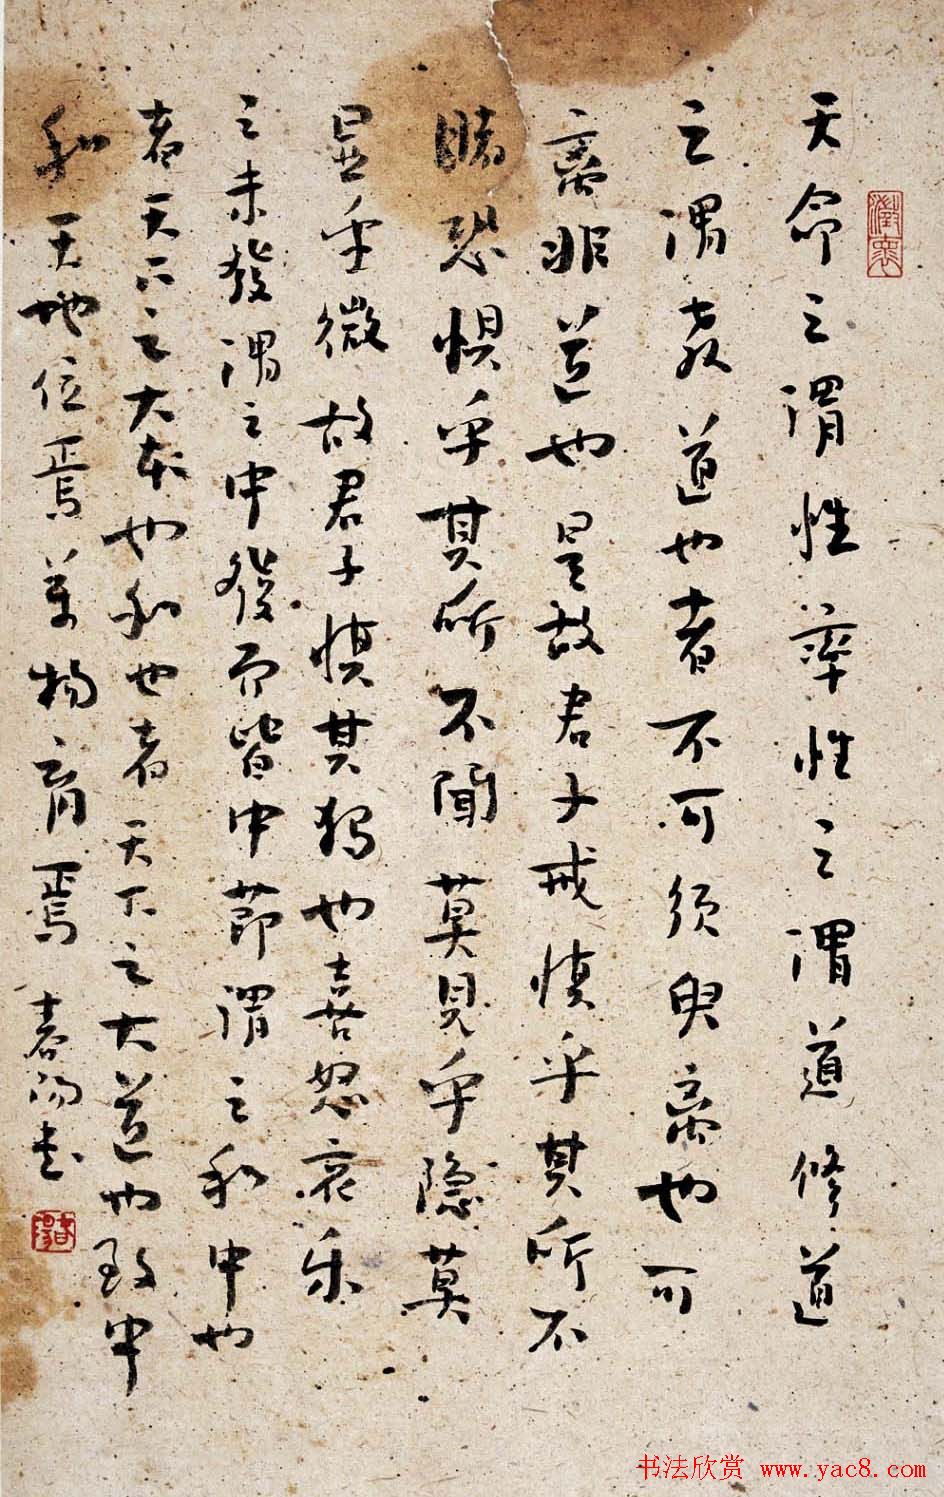 天命之謂性率性之謂道修道
之謂教道也者不可須臾离也可
离非道也是故君子戒慎乎其所不
睹恐惧乎其所不聞莫見乎隐莫
显乎微故君子慎其獨也喜怒哀乐
之未發謂之中發而皆中節謂之和中也
者天下之大本也和也者天下之大道也致中
和天地位焉萬物育焉 春陽书
春陽
书法欣赏 www.yac8.com